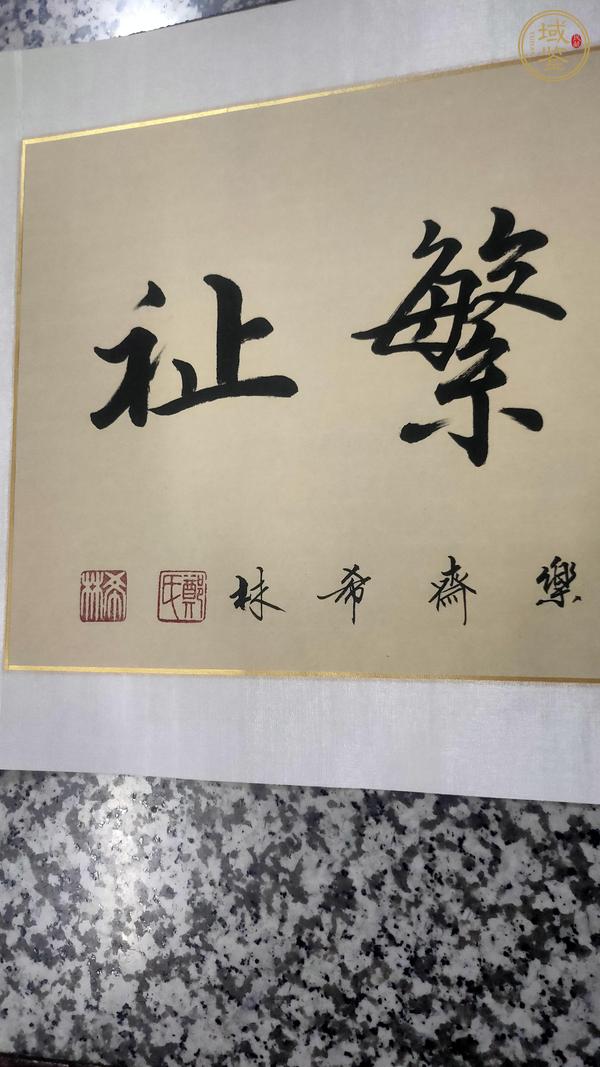 繁祉
樂齋希林
鄭氏
希林
域鉴